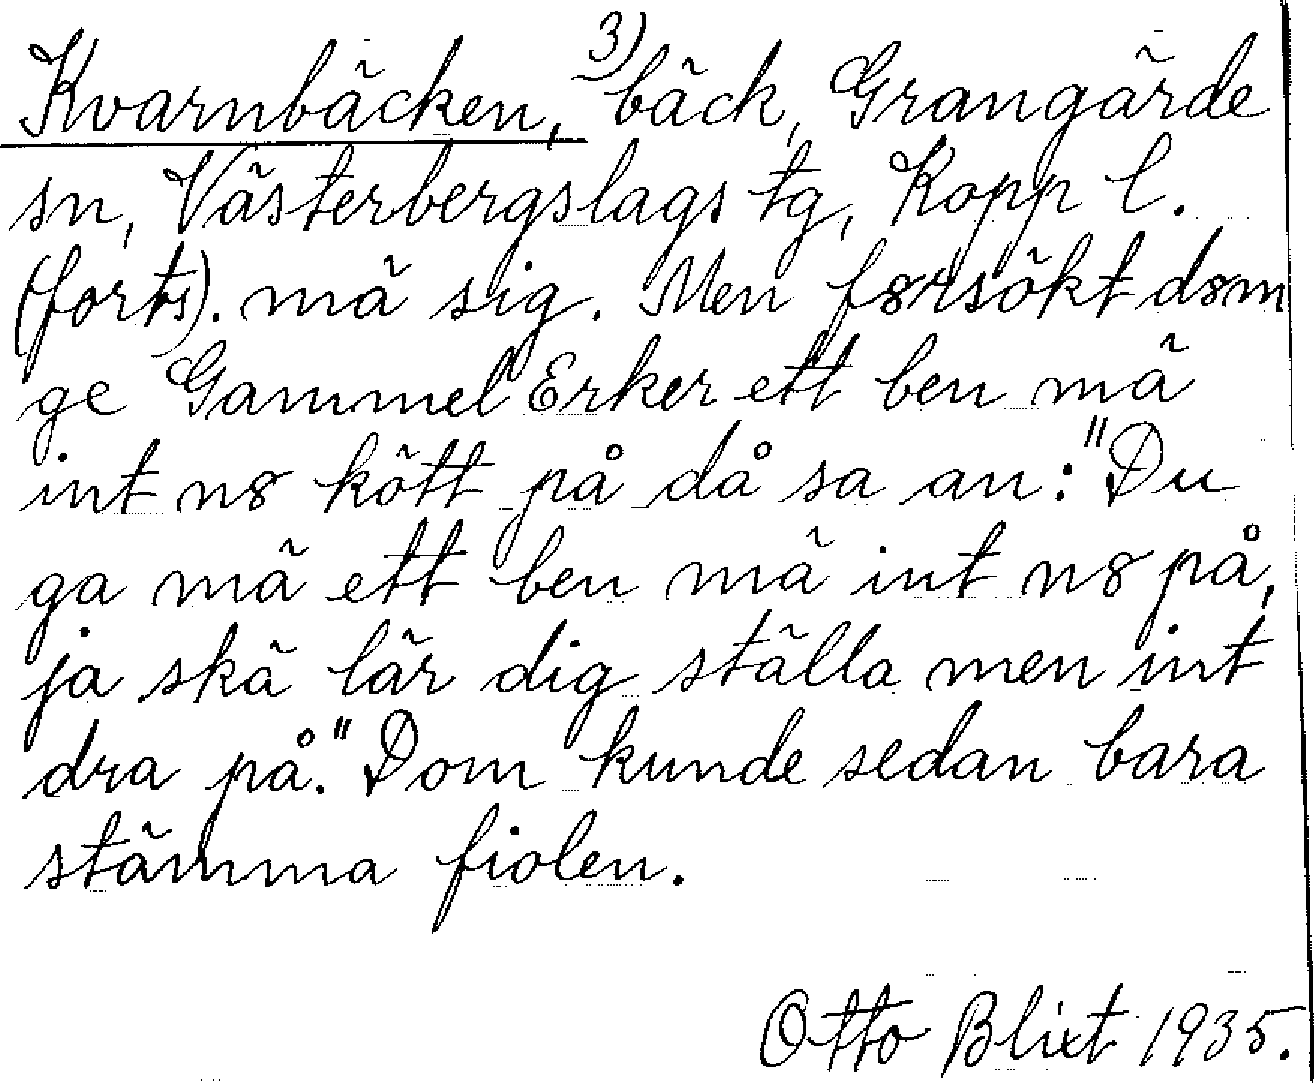 Kvarnbäcken, 3) bäck, Grangärde
sn, Västerbergslags tg, Kopp l.
(forts). mä sig. Men f8rsökt d8m
ge Gammel Erker ett ben mä
int n8 kött på då sa an: "Du
ga mä ett ben mä int n8 på,
ja skä lär dig ställa men int
dra på." Dom kunde sedan bara
stämma fiolen.
Otto Blixt 1935.